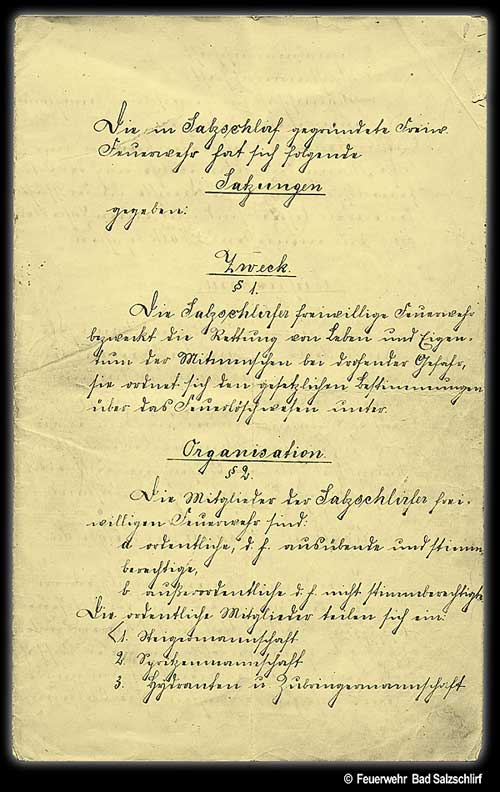 Die in Salzschlirf gegründete Freiw.
Feuerwehr hat sich folgende
Satzungen
gegeben:
Zweck.
§ 1.
Die Salzschlirfer freiwillige Feuerwehr
bezweckt die Rettung von Leben und Eigen-
tum der Mitmenschen bei drohender Gefahr,
sie ordnet sich den gesetzlichen Bestimmungen
über das Feuerlöschwesen unter.
Organisation.
§ 2.
Die Mitglieder der Salzschlirfer frei-
willigen Feuerwehr sind:
a ordentliche, d. h. ausübende und stimm
berechtigte,
b außerordentliche d. h. nicht stimmberechtigte
Die ordentliche Mitglieder teilen sich ein:
1. Steigermannschaft
2. Spritzenmannschaft
3. Hydranten u. Zubringermannschaft
© Feuerwehr Bad Salzschlirf